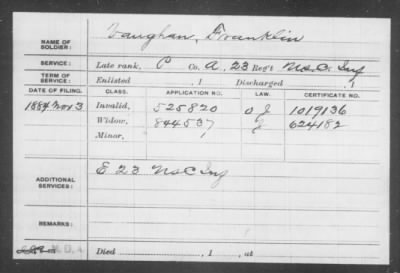 NAME OF SOLDIER: Vaughan, Franklin
SERVICE: Late rank, P Co. A, 23 Reg't U.S.C. Inf
TERM OF SERVICE: Enlisted , 1 Discharged , 1
DATE OF FILING. CLASS. APPLICATION NO. LAW. CERTIFICATE NO.
1884 Nov 3 Invalid, 525820 1019136
Widow, 844537 624182
Minor, 1
ADDITIONAL SERVICES: E 23 U.S.C Inf
REMARKS:
Died , 1 , at